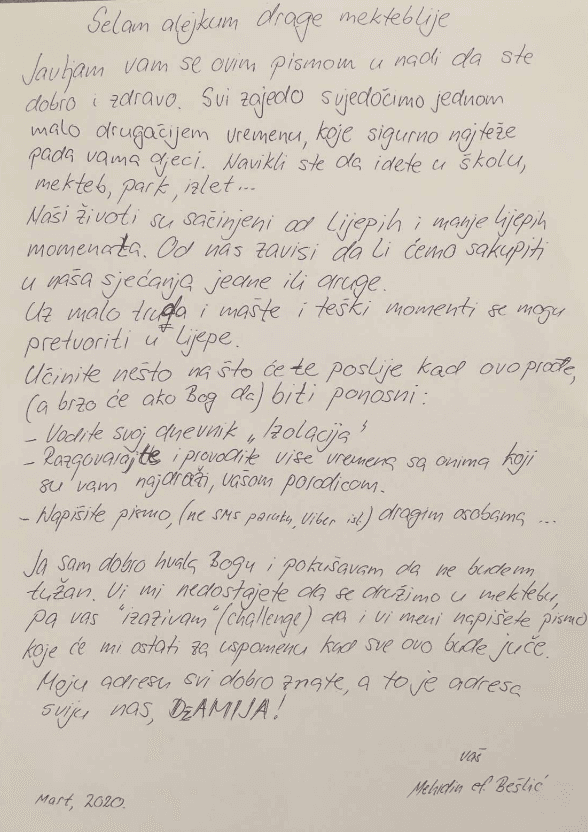 Selam alejkum drage mekteblije
Javljam vam se ovim pismom u nadi da ste
dobro i zdravo. Svi zajedo svjedočimo jednom
malo drugačijem vremenu, koje sigurno najteže
pada vama djeci. Navikli ste da idete u školu,
mekteb, park, izlet...
Naši životi su sačinjeni od lijepih i manje lijepih
momenata. Od nas zavisi da li ćemo sakupiti
u naša sjećanja jedne ili druge.
Uz malo truda i mašte i teški momenti se mogu
pretvoriti u lijepe.
Učinite nešto na što ćete poslije kad ovo prođe,
(a brzo će ako Bog da) biti ponosni:
- Vodite svoj dnevnik „Izolacija"
- Razgovarajte i provodite više vremena sa onima koji
su vam najdraži, vašom porodicom.
- Napišite pismo, (ne SMS poruku, Viber isl.) dragim osobama ...
Ja sam dobro hvala Bogu i pokušavam da ne budem
tužan. Vi mi nedostajete da se družimo u mektebu,
pa vas "izazivam" (challenge) da i vi meni napišete pismo
koje će mi ostati za uspomenu kad sve ovo bude juče.
Moju adresu svi dobro znate, a to je adresa
sviju nas, DŽAMIJA!
vaš
Mehidin ef. Bešlić
Mart, 2020.